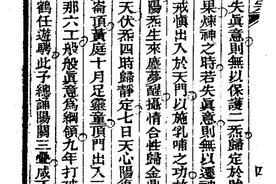 失眞意則無以保護二炁歸定於
果煉神之時若失眞意則無以遷神
戒愼出入於天門以施乳哺之功
陽炁生來塵夢醒攝情合性歸金鼎
天伏炁四時歸靜定七日天心陽復
崙頂黃庭十月足靈童頂門出入
那六工般般眞意爲綱領九年打破
鶴任遊騁此子總誦陽關三疊咸
四